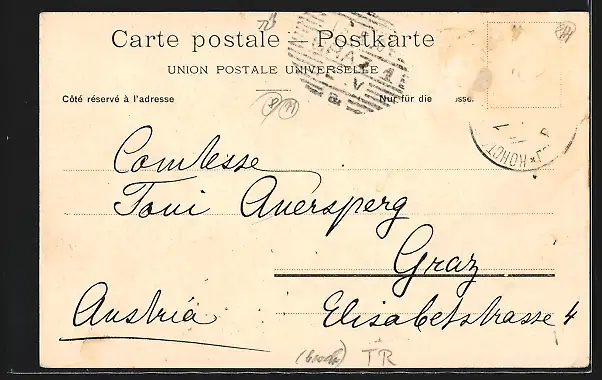 Carte postale – Postkarte
UNION POSTALE UNIVERSELLE
Côté réservé à l'adresse
Nur für die
GRAZ 1
КОНСТ
Comtesse
Toni Auersperg
Graz
Austria
Elisabetstrasse 4
TR